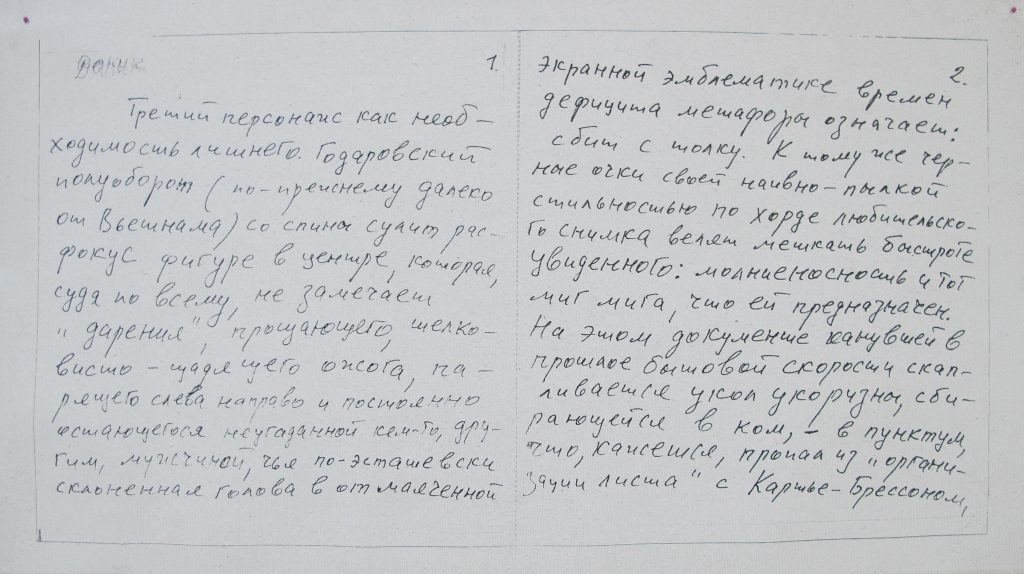 1.
Третий персонаж как необ-
ходимость лишнего. Годаровский
полуоборот (по-прежнему далеко
от Вьетнама) со спины сулит рас-
фокус фигуре в центре, которая,
судя по всему, не замечает
"дарения", прощающего, шелко-
висто-щадящего ожога, па-
рящего слева направо и постоянно
остающегося неугаданной кем-то, дру-
гим, мужчиной, чья по-эсташевски
склоненная голова в отмалченной
2.
экранной эмблематике времен
дефицита метафоры означает:
сбит с толку. К тому же чер-
ные очки своей наивно-пылкой
стильностью по хорде любительско-
го снимка велят мешкать быстроте
увиденного: молниеносность и тот
миг мига, что ей предназначен.
На этом документе канувшей в
прошлое бытовой скорости скап-
ливается укол укоризны, сби-
рающейся в ком, – в пунктум,
что, кажется, пропал из "органи-
зации листа" с Картье-Брессоном,